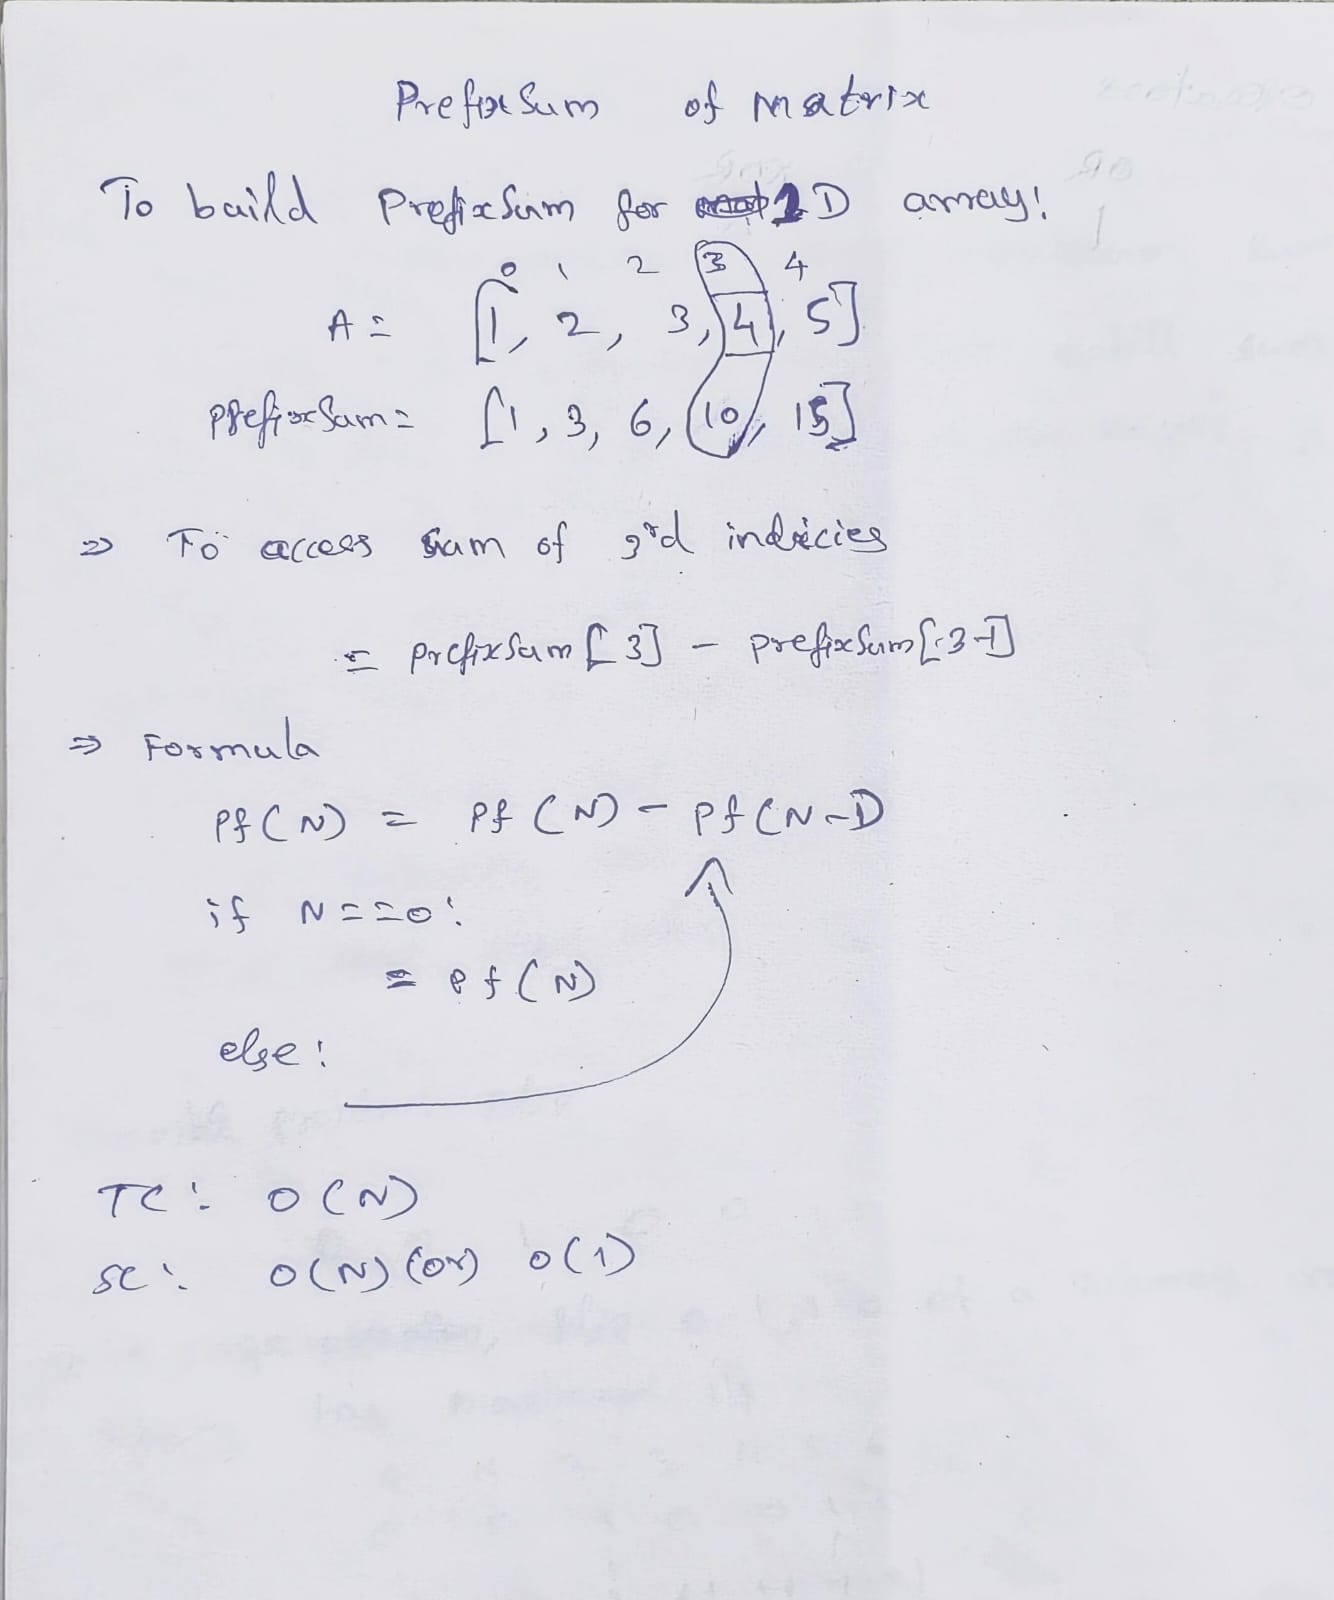 Prefix Sum of matrix
To build Prefix Sum for 1D array:
0 1 2 3 4
A = [1, 2, 3, 4, 5]
Prefix Sum = [1, 3, 6, 10, 15]
⇒ To access sum of 3rd indicies
= Prefix Sum [3] - prefix Sum [3-1]
⇒ Formula
Pf (N) = Pf (N) - Pf (N-1)
if N==0:
= Pf (N)
else:
TC: O(N)
SC: O(N) (or) O(1)